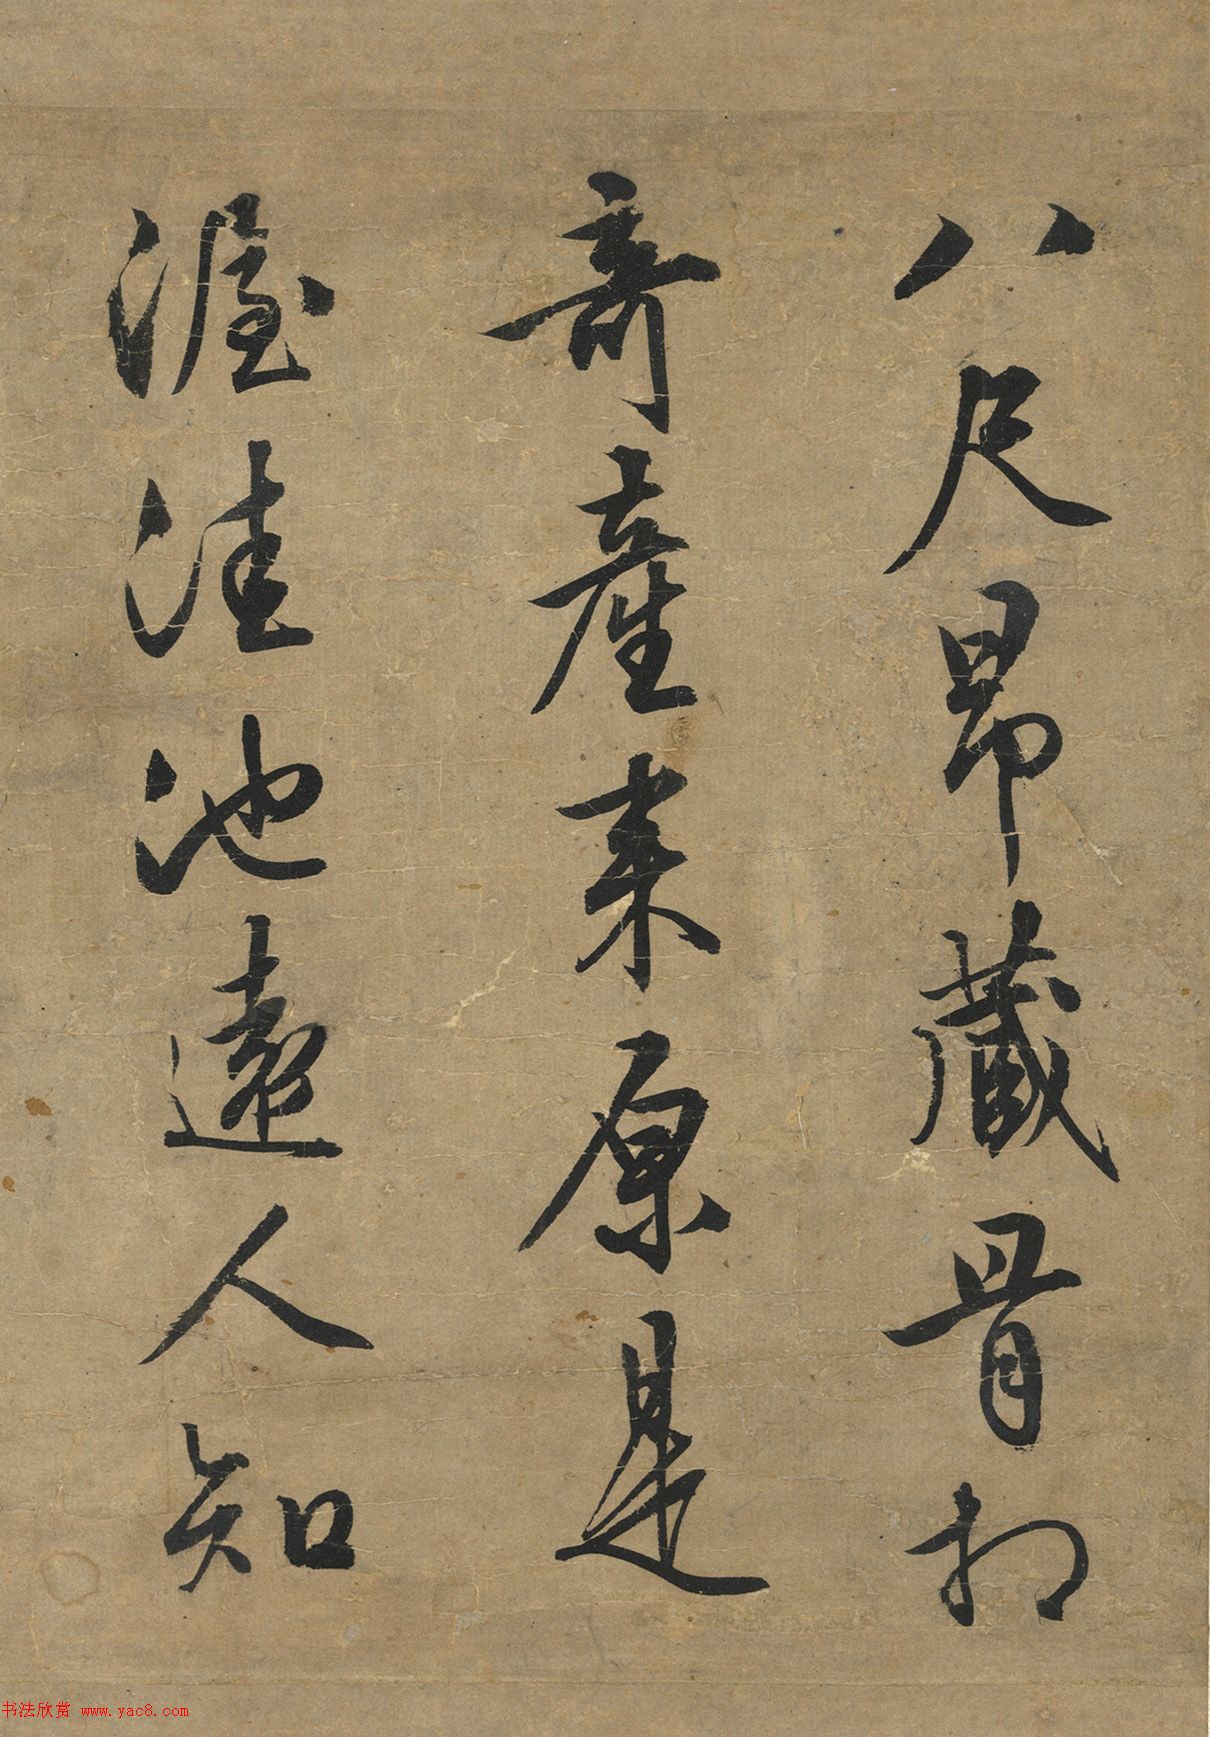 八尺昂藏骨相
奇產來原是
渥洼池遠人知
书法欣赏 www.yac8.com